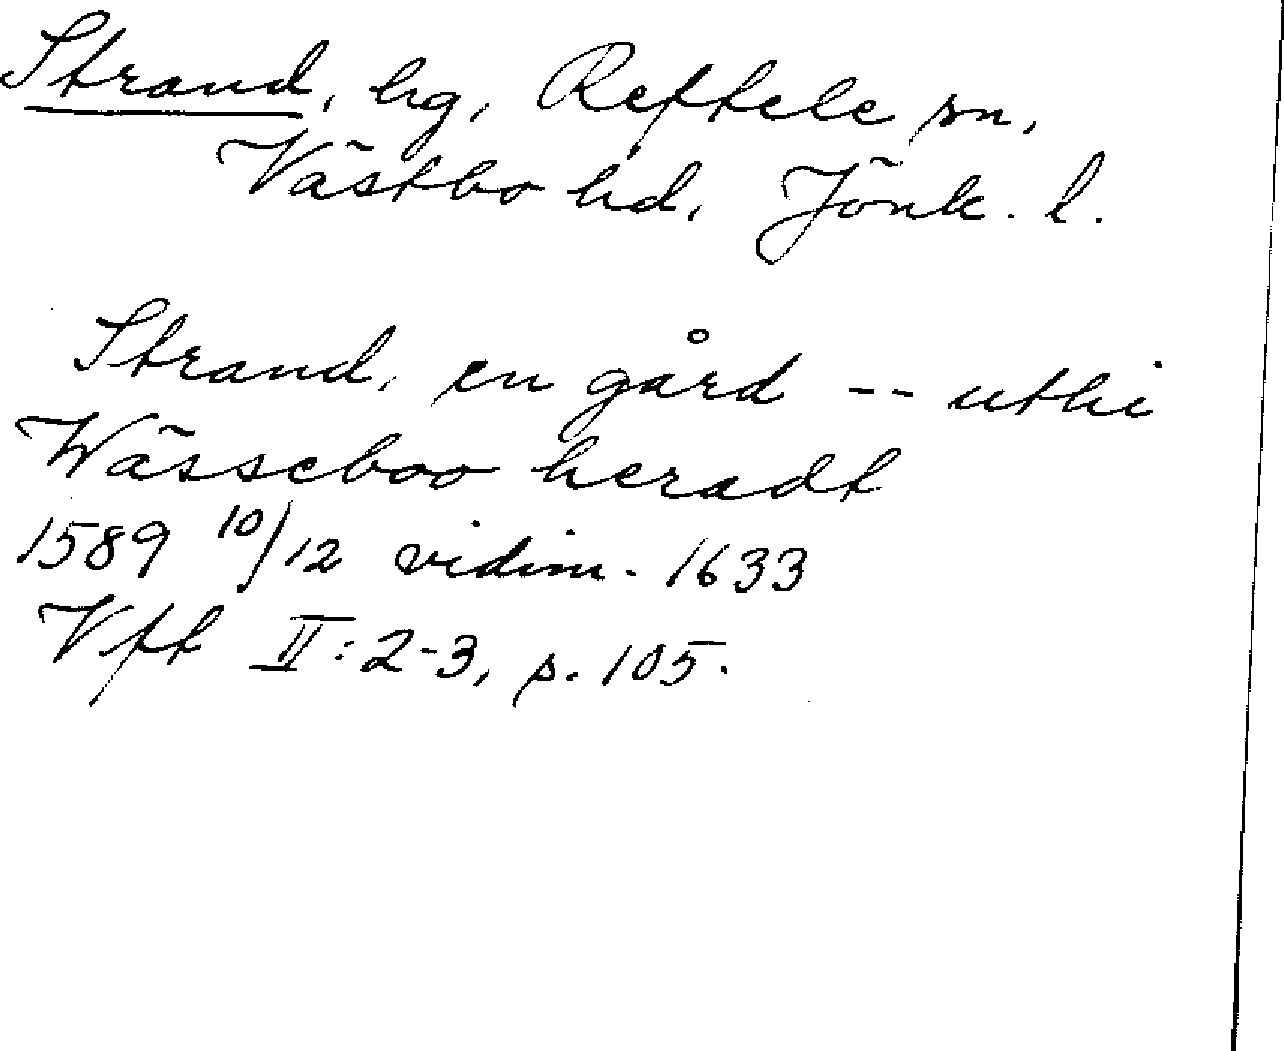 Strand, hg, Reftele sn,
Västbo hd, Jönk. l.
Strand, en gård -- uthi
Wässeboo heradt
1589 10/12 vidim. 1633
Vft II:2-3, s. 105.